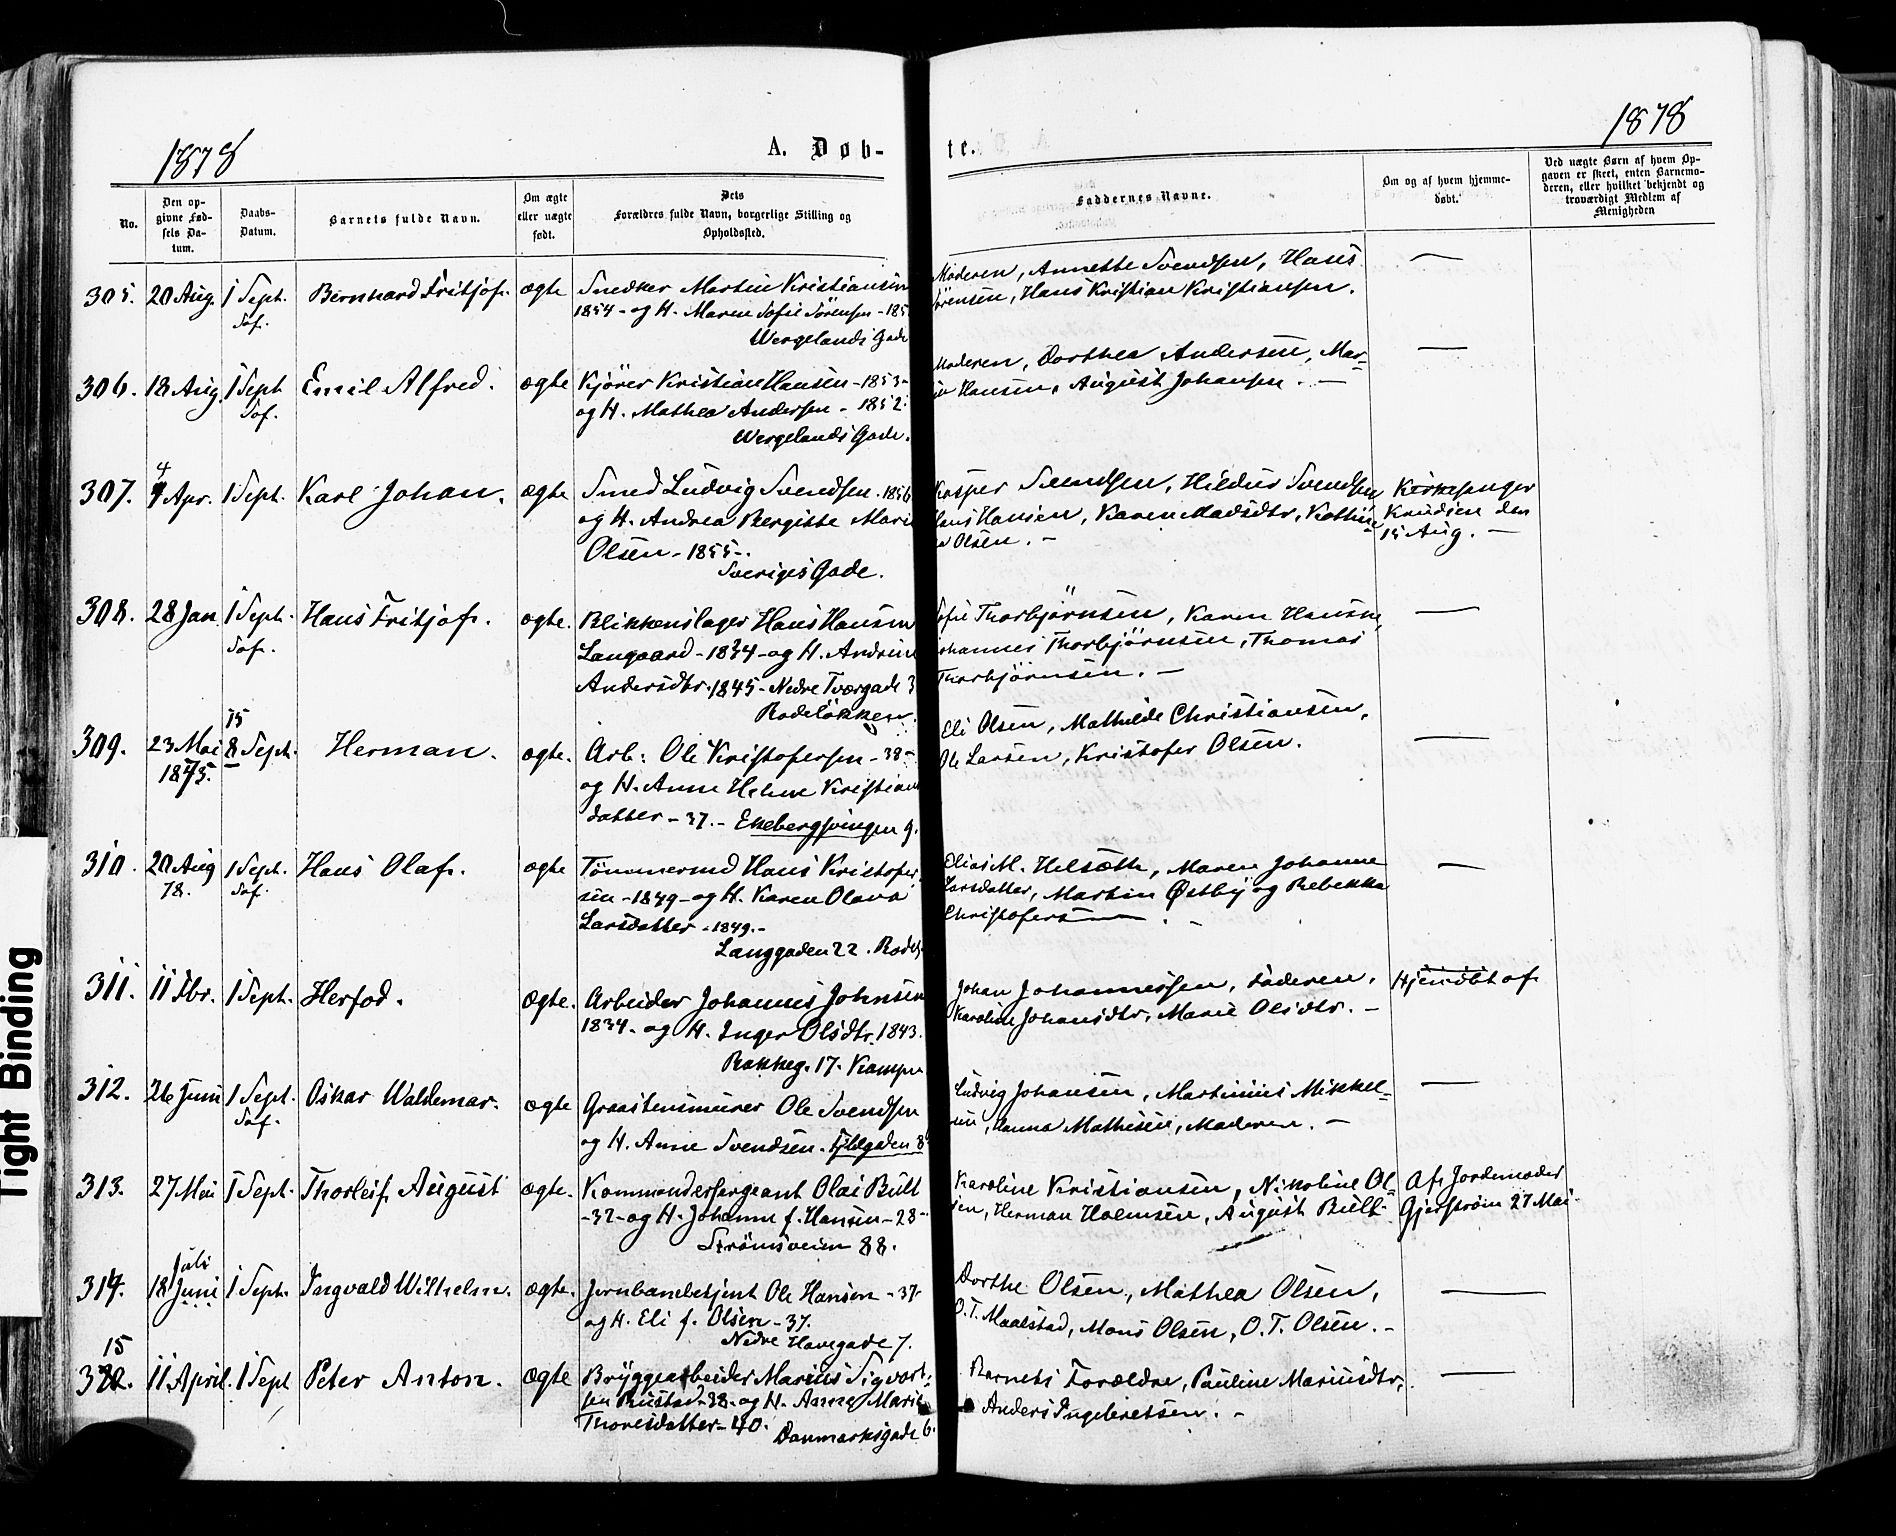 1878
A. Døb-
No.
Den op-
givne Fød-
sels Da-
tum.
Daabs-
Datum.
Barnets fulde Navn.
Om ægte
eller uægte
født.
Dets
Forældres fulde Navn, borgerlige Stilling og
Opholdssted.
305. 20 Aug. 1 Sept. Bernhard Fritjof. ægte Snedker Martin Kristiansen
Sof. 1854 - og H. Maren Sofie Sörensen - 185
Wergelands Gade
306. 18 Aug. 1 Sept Emil Alfred. ægte Kjører Kristian Hansen - 1853 -
Sof. og H. Mathea Andersen - 1852.
Wergelands Gade.
4
307. Apr. 1 Sept. Karl Johan. ægte Smed Ludvig Svendsen. 1856
og H. Andrea Bergitte Marie
Olsen - 1855 -.
Sveriges Gade.
308. 28 Jan 1 Sept. Hans Fritjof. ægte. Blikkenslager Hans Hansen
Sof. Langaard - 1834 - og H. Andrine
Andersdtr. 1845 - Nedre Tværgade 3
Rodeløkken.
15
309. 23 Mai 8 Sept. Herman. ægte. Arb: Ole Kristofersen - 38 -
1875. og H. Anne Helene Kristians
datter - 37. - Ekebergsvingen 9.
310. 20 Aug 1 Sept. Hans Olaf. ægte Tømmermd Hans Kristofer
78. Sof. sen - 1849 - og H. Karen Olava
Larsdatter - 1849. -
Langgaden 22. Rodel.
311. 11 Fbr. 1 Sept. Herfod. ægte. Arbeider Johannes Johnsen
1834 - og H. Inger Olsdtr. 1843.
Bakkeg. 17. Kampen
312. 26 Juni 1 Sept. Oskar Waldemar. ægte Graastensmurer Ole Svendsen
Sof. og H. Anne Svendsen.
313. 27 Mai 1 Sept. Thorleif August ægte. Kommandersergeant Olai Bült
- 32 - og H. Johanne f. Hansen - 28 -
Strömsveien 88.
Juli
314. 18 Juni 1 Sept. Ingvald Wilhelm. ægte. Jernbanebetjent Ole Hansen - 37 -
og H. Eli f. Olsen - 37.
Nedre Havegade 7.
15
11 April. 1 Sept Peter Anton. ægte Bryggearbeider Marius Sigvart-
sen Rustad - 38 - og H. Anne Marie
Thoresdatter - 40. Danmarksgade 6.
1878
te.
Faddernes Navne.
Om og af hvem hjemme-
døbt.
Ved uægte Børn af hvem Op-
gaven er skeet, enten Barnemo-
deren, eller hvilket bekjendt og
troværdigt Medlem af
Menigheden
Moderen, Annette Svendsen, Hans
Sörensen, Hans Kristian Kristiansen.
Moderen, Dorthea Andersen, Mar-
Hansen, August Johansen. -
Kasper Svendsen, Hildur Svendsen Kirkesanger
Hans Hansen, Karen Madsdtr, Kathin Knudsen den
a Olsen. - 15 Aug. -
Sofie Thorbjörnsen, Karen Hansen,
Johannes Thorbjörnsen, Thomas
Thorbjörnsen. -
Eli Olsen, Mathilde Christiansen,
Ole Larsen, Kristofer Olsen.
Elias M. Helsæth, Maren Johanne
Larsdatter, Martin Østby og Rebekka
Christofersen.
Johan Johannessen, Faderen, Hjemdöbt af
Karoline Johansdtr, Marie Olsdtr. -
Ludvig Johansen, Martinius Mikkel-
sen, Hanna Mathisen, Moderen. -
Karoline Kristiansen, Nikoline Ol- Af Jordemoder
sen, Herman Holmsen, August Bült. Gjerström 27 Mai
Dorthe Olsen, Mathea Olsen,
O. T. Maalstad, Mons Olsen, O. T. Olsen. -
Barnets Forældre, Pauline Mariusdtr,
Anders Ingebretsen. -
Tight Binding